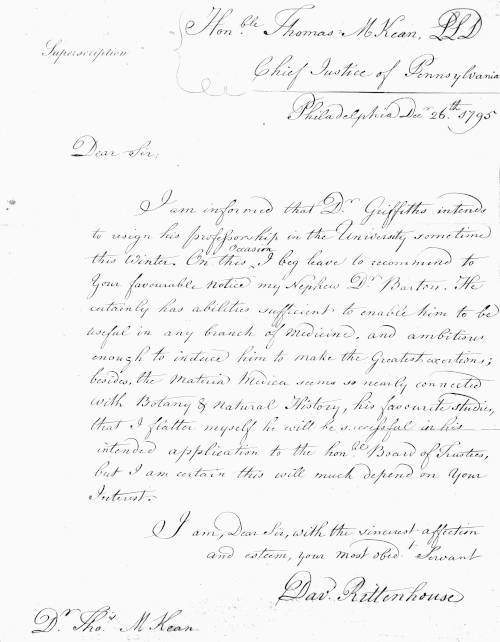 Hon.ble Thomas M.Kean, LLD
Superscription
Chief Justice of Pennsylvania
Philadelphia Decr 26.th 1795
Dear Sir,
I am informed that Dr. Griffiths intends
to resign his professorship in the University sometime
this Winter. On this Occasion, I beg leave to recommend to
Your favourable notice my Nephew Dr. Barton. He
certainly has abilities sufficient to enable him to be
useful in any branch of Medicine, and ambitious
enough to induce him to make the Greatest exertions;
besides, the Materia Medica seems so nearly connected
with Botany & Natural History, his favourite studies,
that I flatter myself he will be successful in his
intended application to the hon.ble Board of Trustees,
but I am certain this will much depend on Your
Interest.
I am, Dear Sir, with the sincerest affection
and esteem, your most obed.t Servant
Dav. Rittenhouse
Dr. Thos. M.Kean